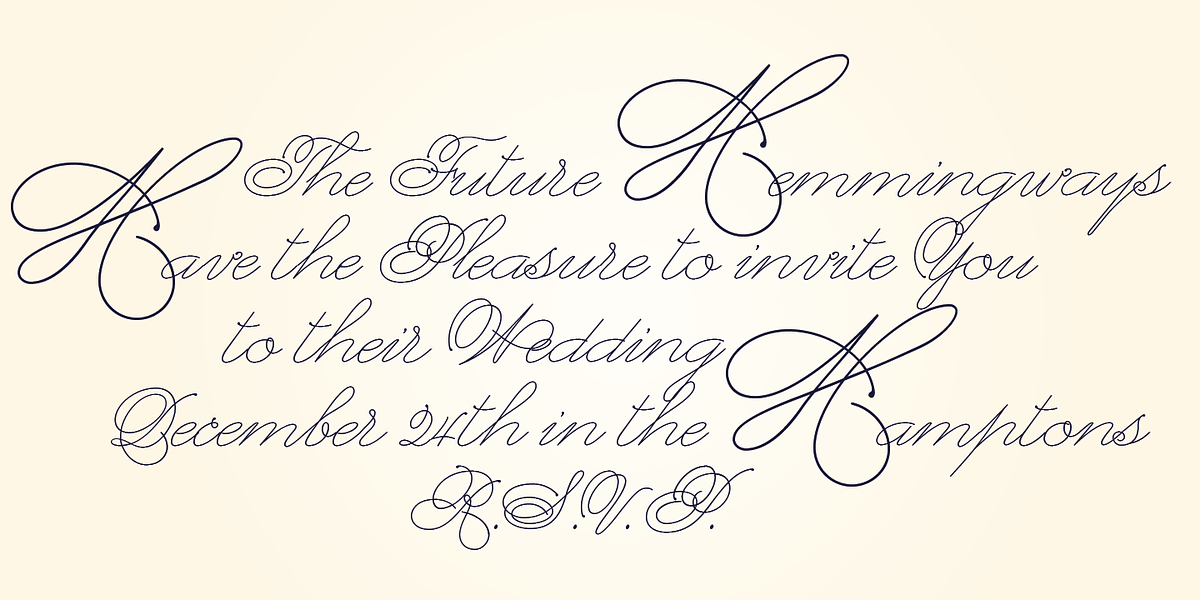 The Future Hemmingways
Have the Pleasure to invite You
to their Wedding
December 24th in the Hamptons
R.S.V.P.